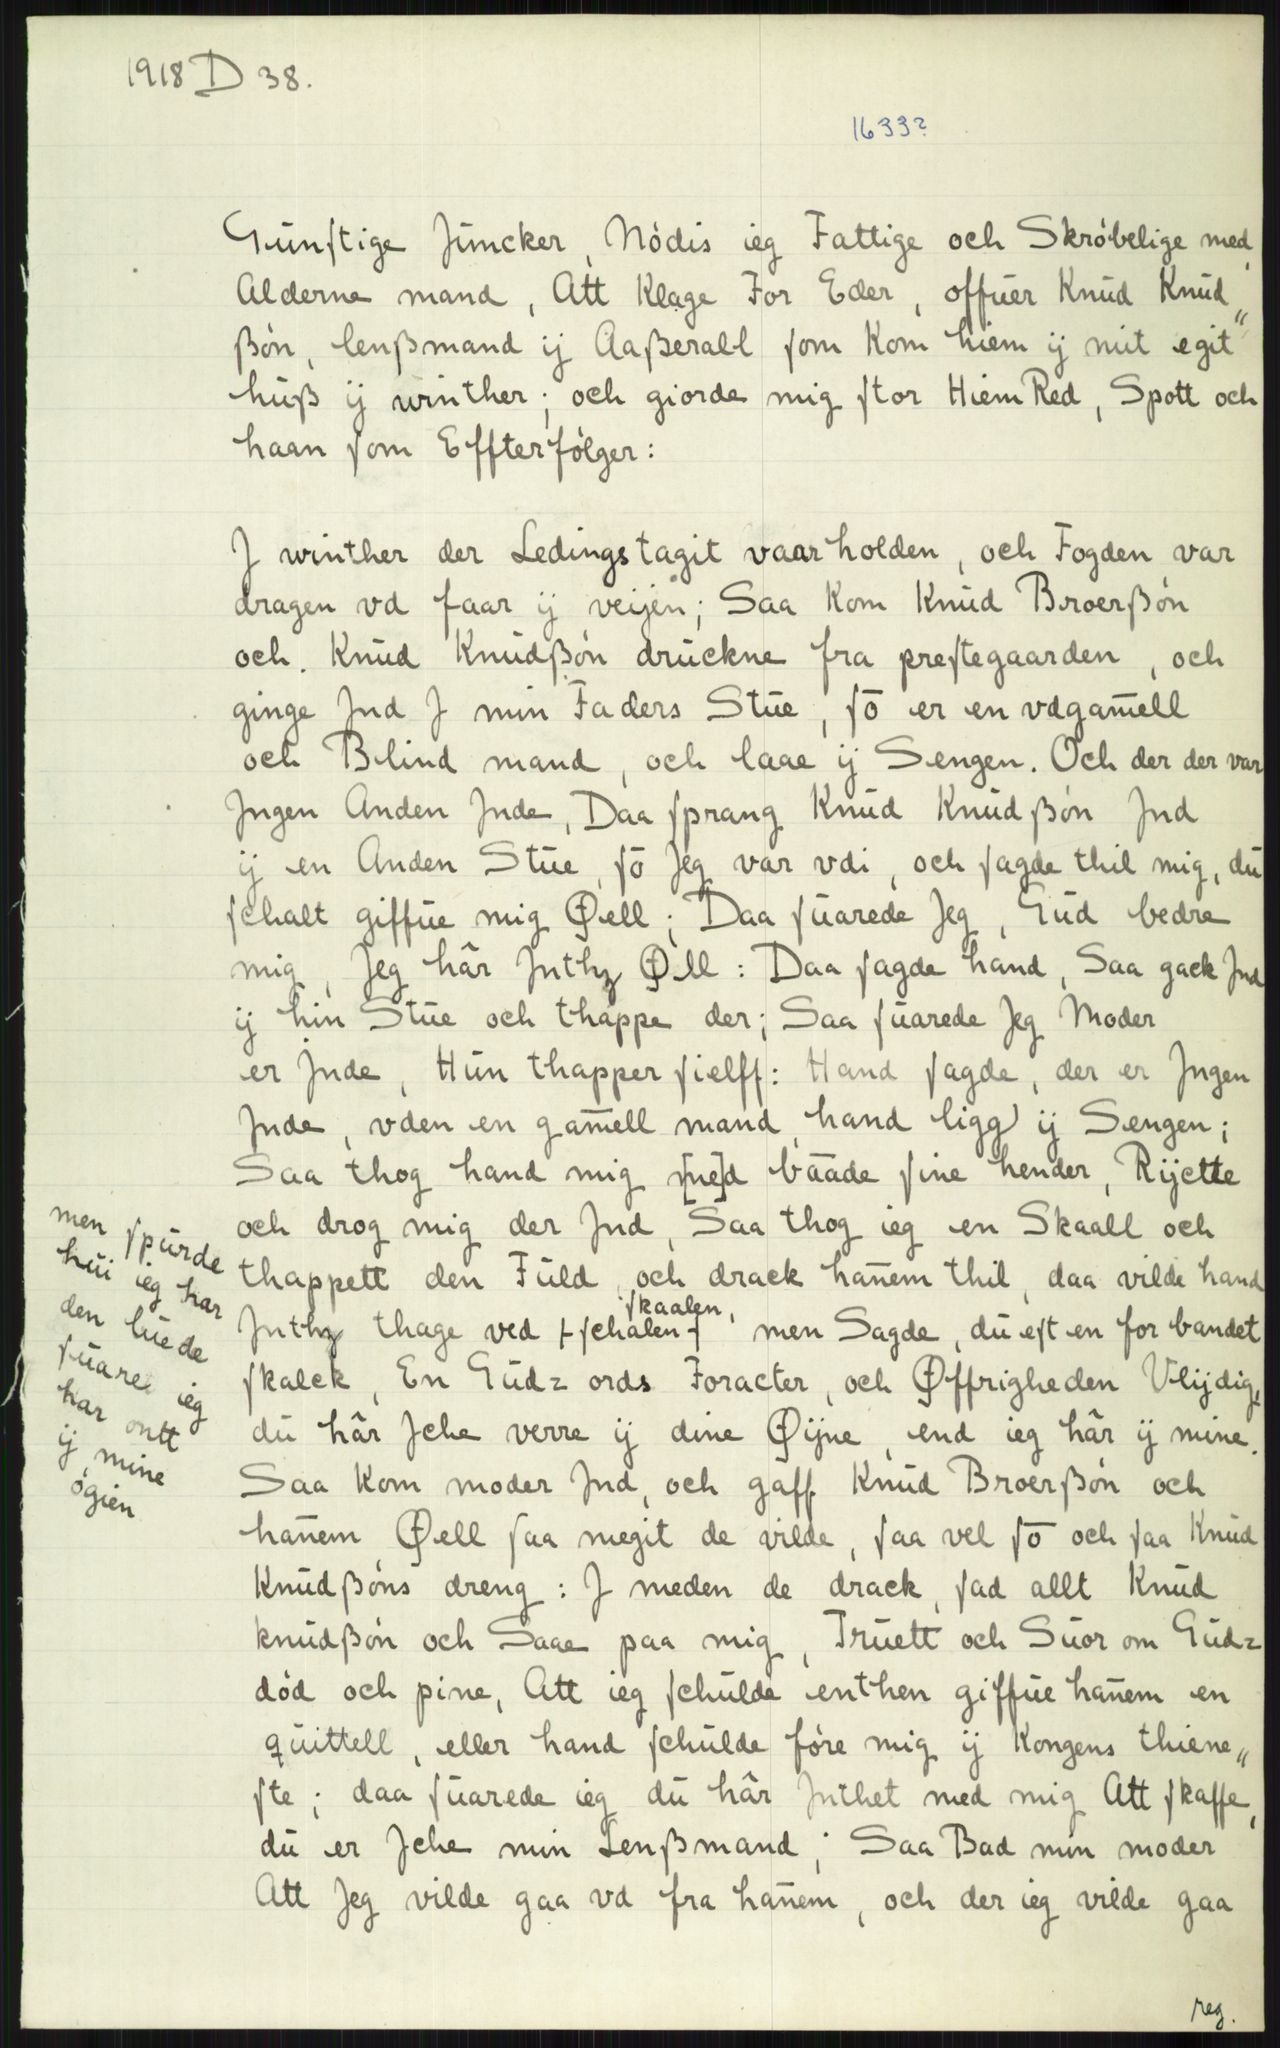 1918 D 38.
1633?
Günstige Jüncker, Nödis ieg Fattige och Skröbelige med
Alderne mand, Att Klage For Eder, offüer Knüd Knüd„
ßön, lenßmand ij Aaßerall som Kom hiem ij mit egit
hüß ij winther; och giorde mig stor HiemRed, Spott och
haan som Effterfölger:
J winther der Ledingstagit vaar holden, och Fogden var
dragen vd faar ij veijen; Saa Kom Knüd Broerßön
och Knüd Knüdßön drückne fra prestegaarden, och
ginge Jnd J min Faders Stüe, sō er en vdgam̄ell
och Blind mand, och laae ij Sengen. Och der der var
Jngen Anden Jnde, Daa sprang Knüd Knüdßön Jnd
ij en Anden Stüe, sō Jeg var vdi, och sagde thil mig, dü
schalt giffüe mig Øell; Daa süarede Jeg, Güd bedre
mig, Jeg hâr Jnthz Øll: Daa sagde hand, Saa gack Jnd
ij hin Stüe och thappe der; Saa süarede Jeg Moder
er Jnde, Hün thapper sielff: Hand sagde, der er Jngen
Jnde, vden en gam̄ell mand, hand ligg) ij Sengen;
Saa thog hand mig [me]d bāāde sine hender, Rijctte
och drog mig der Jnd, Saa thog ieg en Skaall och
thappett den Füld, och drack han̄em thil, daa vilde hand
Jnthz thage ved [schalen] skaalen, men Sagde, dü est en forbandet
skalck, En Güdz ords Foracter, och Øffrigheden Vlijdig,
dü hâr Jche verre ij dine Øijne, end ieg hâr ij mine.
Saa Kom moder Jnd, och gaff Knüd Broerßön och
han̄em Øell saa megit de vilde, saa vel sō och saa Knüd
Knüdßöns dreng: J meden de drack, sad allt Knüd
knüdßön och Saae paa mig, Trüett och Süor om Güdz
död och pine, Att ieg schülde enthen giffüe han̄em en
qüittell, eller hand schülde före mig ij Kongens thiene„
ste; daa süarede ieg dü hâr Jnthet med mig Att skaffe,
dü er Jche min Lenßmand; Saa Bad min moder
Att Jeg vilde gaa vd fra han̄em, och der ieg vilde gaa
men spürde
hüi ieg har
den lüede
süare ieg
har ontt
ij mine
ögien
reg.